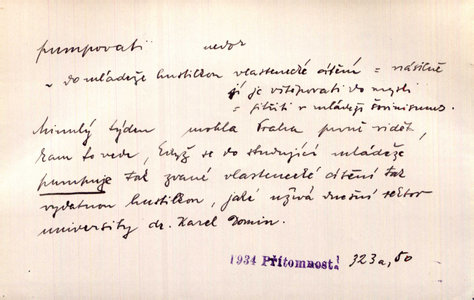 pumpovati nedok
~ do mládeže hustilkou vlastenecké cítění = násilně
jí je vštěpovati do mysli
= pěstiti v mládeži šovinismus.
Minulý týden mohla Praha první vidět,
kam to vede, když se do studující mládeže
pumpuje tak zvané vlastenecké cítění tak
vydatnou hustilkou, jaké užívá dnešní rektor
university dr. Karel Domin.
1934 Přítomnost 323a, 50